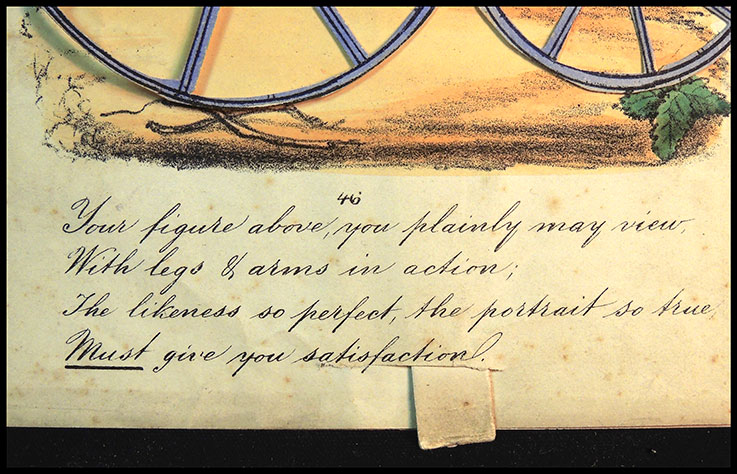 46
Your figure above, you plainly may view,
With legs & arms in action;
The likeness so perfect, the portrait so true,
Must give you satisfaction.